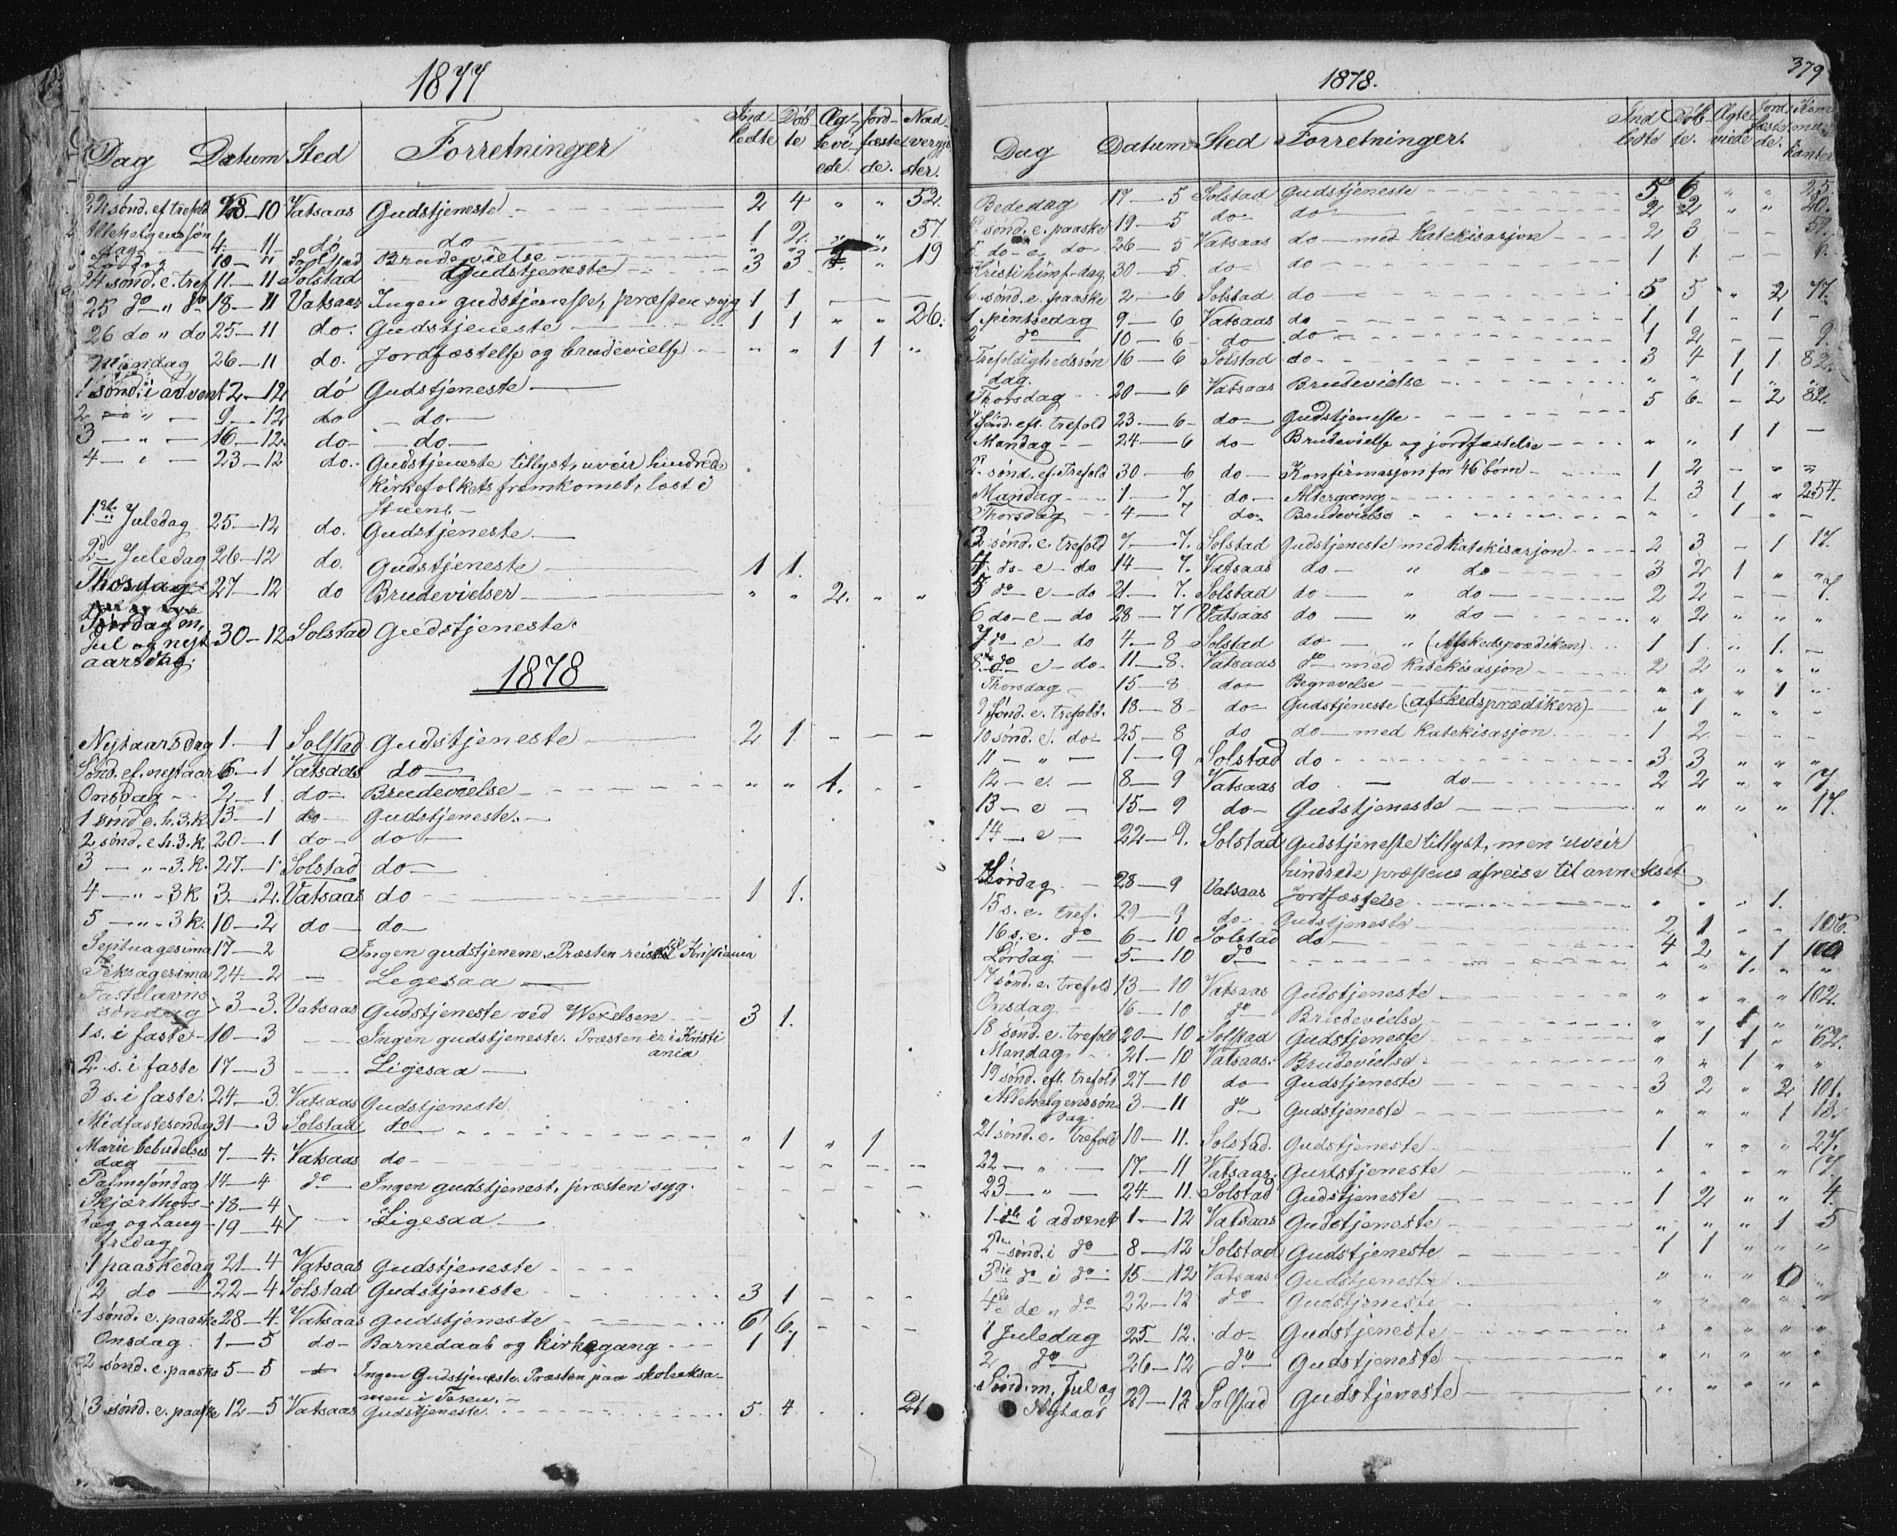 1877
Dag Datum Sted Forretninger Ind- ledte Døb te Æg- tevi ede. Jord- fæste de. Nad verg. ster.
22 sønd. ef trefold 28–10 Vatsaas Gudstjeneste 2 4 " " 52.
Allehelgenssøn dag 4– 11– do do 1 2. " " 57.
10– 11 Solstad Brudevielse " " 1 "
24 sønd. e. tref 11.– 11 Solstad Gudstjeneste 3 3 " " 19
25 do " do 18– 11 Vatsaas Ingen gudstjeneste, præsten syg 1 1 — —
26 do " do 25–11 do. Gudstjeneste 1 1 " " 26.
Mandag 26–11 do. Jordfæstelse og brudevielse " " 1 1 "
1 sønd. i advent 2–12 do Gudstjeneste
2 — " — 9–12 do — do —
3 — " — 16–12. do — do —
4 — " — 23–12 do. Gudstjeneste tillyst, uveir hindrede
kirkefolkets fremkomst, læst i
Stuen. –
1ste Juledag 25–12 do. Gudstjeneste.
2den Juledag 26–12 do. Gudstjeneste 1 1.
Thorsdag 27–12 do Brudevielser " " 2. " "
Søndag m,
Jul og nyt
aarsdag. 30–12 Solstad Gudstjeneste.
1878
Nytaarsdag 1–1 Solstad Gudstjeneste 2 1. – – –
Sønd. ef. nytaar 6–1 Vatsaas do
Onsdag 2–1. do– Brudevielse " " 1. – –
1 sønd e. h. 3. k. 13–1 do Gudstjeneste. –
2 sønd. e h. 3. k. 20–1 do– do
3 — " – 3. k. 27–1. Solstad do
4 — " – 3 k 3.–2. Vatsaas do – 1 1.
5 — " – 3 k. 10–2 do do
Septuagesima 17–2 Ingen gudstjenene. Præsten reist til Kristiania
Seksagesima 24–2 – Ligesaa
Fastelavns
søndag 3–3. Vatsaas Gudstjeneste ved Wexelsen 3 1.
1 s. i faste 10–3 Ingen gudstjeneste. Præsten er i Kristi
ania
2 s. i faste 17–3 Ligesaa
3 s. i faste. 24–3. Vatsaas Gudstjeneste.
Midfastesøndag 31–3 Solstad do " 1 " 1
Marie bebudelses
dag 7–4. Vatsaas do
Palmesøndag 14–4 do Ingen gudstjenest, præsten syg.
Skjærthors– 18–4
dag og Lang– 19–4 Ligesaa
fredag
1 paaskedag 21–4 Vatsaas Gudstjeneste
2 do 22–4 Solstad Gudstjeneste 3 1 – – –
1 sønd. e. paaske 28–4. Vatsaas Gudstjeneste 6 6 – – –
Onsdag 1–5 do– Barnedaab og kirkegang 1 1
2 sønd. e. paaske 5–5 Ingen Gudstjeneste. Præsten paa skoleeksa-
men i
3 sønd. e. paaske 12–5 Vatsaas Gudstjeneste. 5. 4.
1878. 379
Dag Datum Sted Forretninger. Ind ledte Døb te. Ægte viede Jord fæst de. Kom mu kanter
Bededag 17–5 Solstad Gudstjeneste 5 6 " " 25.
sønd. e. paaske 19–5 do do 2 2 " " 20.
do– e– do– 26–5 Vatsaas do– med Katekisasjon 2 3 – – 51.
Kristi himf. dag 30–5. do do 1 1 – – 9.
6 sønd. e. paaske 2–6 Solstad do 5 5 " 2 77.
1 pintsedag 9–6 Vatsaas do 1 1 " 1 –
2 do 10–6– do do 1 2 – – 9.
Trefoldighedssøn
dag. 16–6 Solstad do 3 4 1 1. 82.
Thorsdag 20–6 Vatsaas Brudevielse " " 1 " "
1 Sønd. eft. trefold 23–6– do Gudstjeneste 5 6 – 2 82.
Mandag 24–6 do– Brudevielse og jordfæstelse " " 1 1 –
2. sønd. ef. Trefold 30–6 do– Konfirmasjon for 46 børn 1 2 – " "
Mandag 1–7 do– Altergang 1. 3 1. " 254.
Thorsdag 4–7 do. Brudevielse " " 1 " –
3 sønd. e. trefold 7–7. Solstad Gudstjeneste med katekisasjon 2 3 – 1 17.
4 do– e– do 14–7. Vatsaas do– " do– 3 2 1 " "
5 do– e– do 21–7. Solstad do– " do– 2 2 – – 7.
6 do– e– do 28–7 Vatsaas do– " do– " 2 " " "
7 do– e– do 4–8 Solstad do– " (Afskedsprædiken) 1 1 " 1. –
8 do e– do– 11–8. Vatsaas do med katekisasjon 2 2 " " "
Thorsdag 15–8 do– Begravelse " " " 1 "
9 Sønd. e. trefold. 18–8– do– Gudstjeneste (afskedsprædiken) " 1 " " "
10 sønd. e. do– 25–8 do do– med Katekisasjon. 1 2 – – –
11 — " — 1–9 Solstad do 3 3 " " "
12 – e – 8–9 Vatsaas do – do– 2 2 " " 7.
13 – e – 15–9 do– Gudstjeneste " " " " 17.
14 – e – 22–9. Solstad Gudstjeneste tillyst, men uveir
hindrede præstens afreise til annekset
Lørdag 28–9 Vatsaas Jordfæstelse " " " 1.
15 s. e. tref. 29–9 do– Gudstjeneste 2 1 " " 106.
16 s. e. do 6–10 Solstad do 4 2 " 1 100
Lørdag 5–10 do " " 1. " "
17 sønd. e. trefold 13–10 Vatsaas Gudstjeneste " " " " 102.
Onsdag 16–10 do Brudevielse " " 1 " "
18 sønd. e. trefold 20–10 Solstad Gudstjeneste " 1 1 " 62.
Mandag 21–10 Vatsaas. Brudevielse " " 1 " "
19 sønd. eft. trefold 27–10 do– Gudstjeneste 3 2 " 2 101.
Allehelgenssøn
dag. 3–11 do Gudstjeneste " " " 1
21 sønd. e. trefold 10–11. Solstad. Gudstjeneste 1 " " " 27.
22 — " — 17–11 Vatsaas Gudstjeneste " " " " 7.
23 — " — 24–11. Solstad Gudstjeneste 1 2 " " 4.
1ste i advent 1–12 Vatsaas Gudstjeneste " " " 1 5
2den sønd. i do 8–12 Solstad Gudstjeneste 1 1 " " "
3die do i do 15–12 Vatsaas Gudstjeneste " " " 0 "
4de do " do 22–12 do Gudstjeneste " " " " "
1 Juledag 25–12. do– Gudstjeneste " " " " "
2 do 26–12 do Gudstjeneste " " " " "
Sønd. m. Jul og
Nytaar 29–12 Solstad Gudstjeneste " " " " "